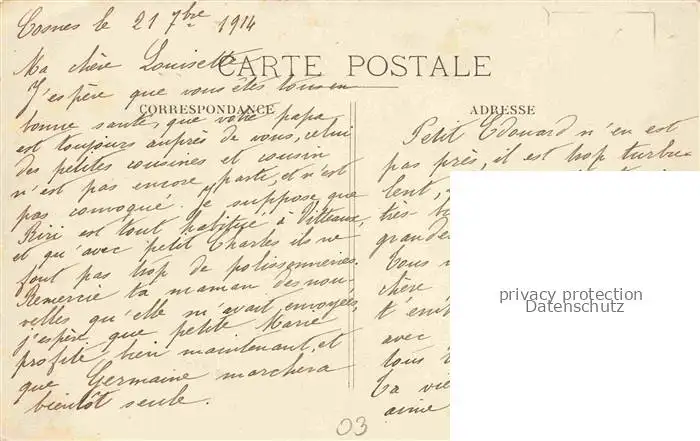 Cosnes le 21 7bre 1914
Ma chère Louisette
CARTE POSTALE
J'espère que vous êtes tous en
CORRESPONDANCE
bonne santé, que votre papa
est toujours auprès de vous, celui
des petites cousines et cousin
n'est pas encore parti, et n'est
pas convoqué. Je suppose que
Riri est tout habitué à Vitteaux,
et qu'avec petit Charles ils ne
font pas trop de polissonneries.
Remercie ta maman des nou-
velles qu'elle m'avait envoyées,
j'espère que petite Marie
profite bien maintenant, et
que Germaine marchera
bientôt seule.
ADRESSE
Petit Edouard n'en est
pas près, il est trop turbu-
lent,
très
grande
Tous
chère
t'em
avec
tous
Ta vie
aime
03
privacy protection
Datenschutz